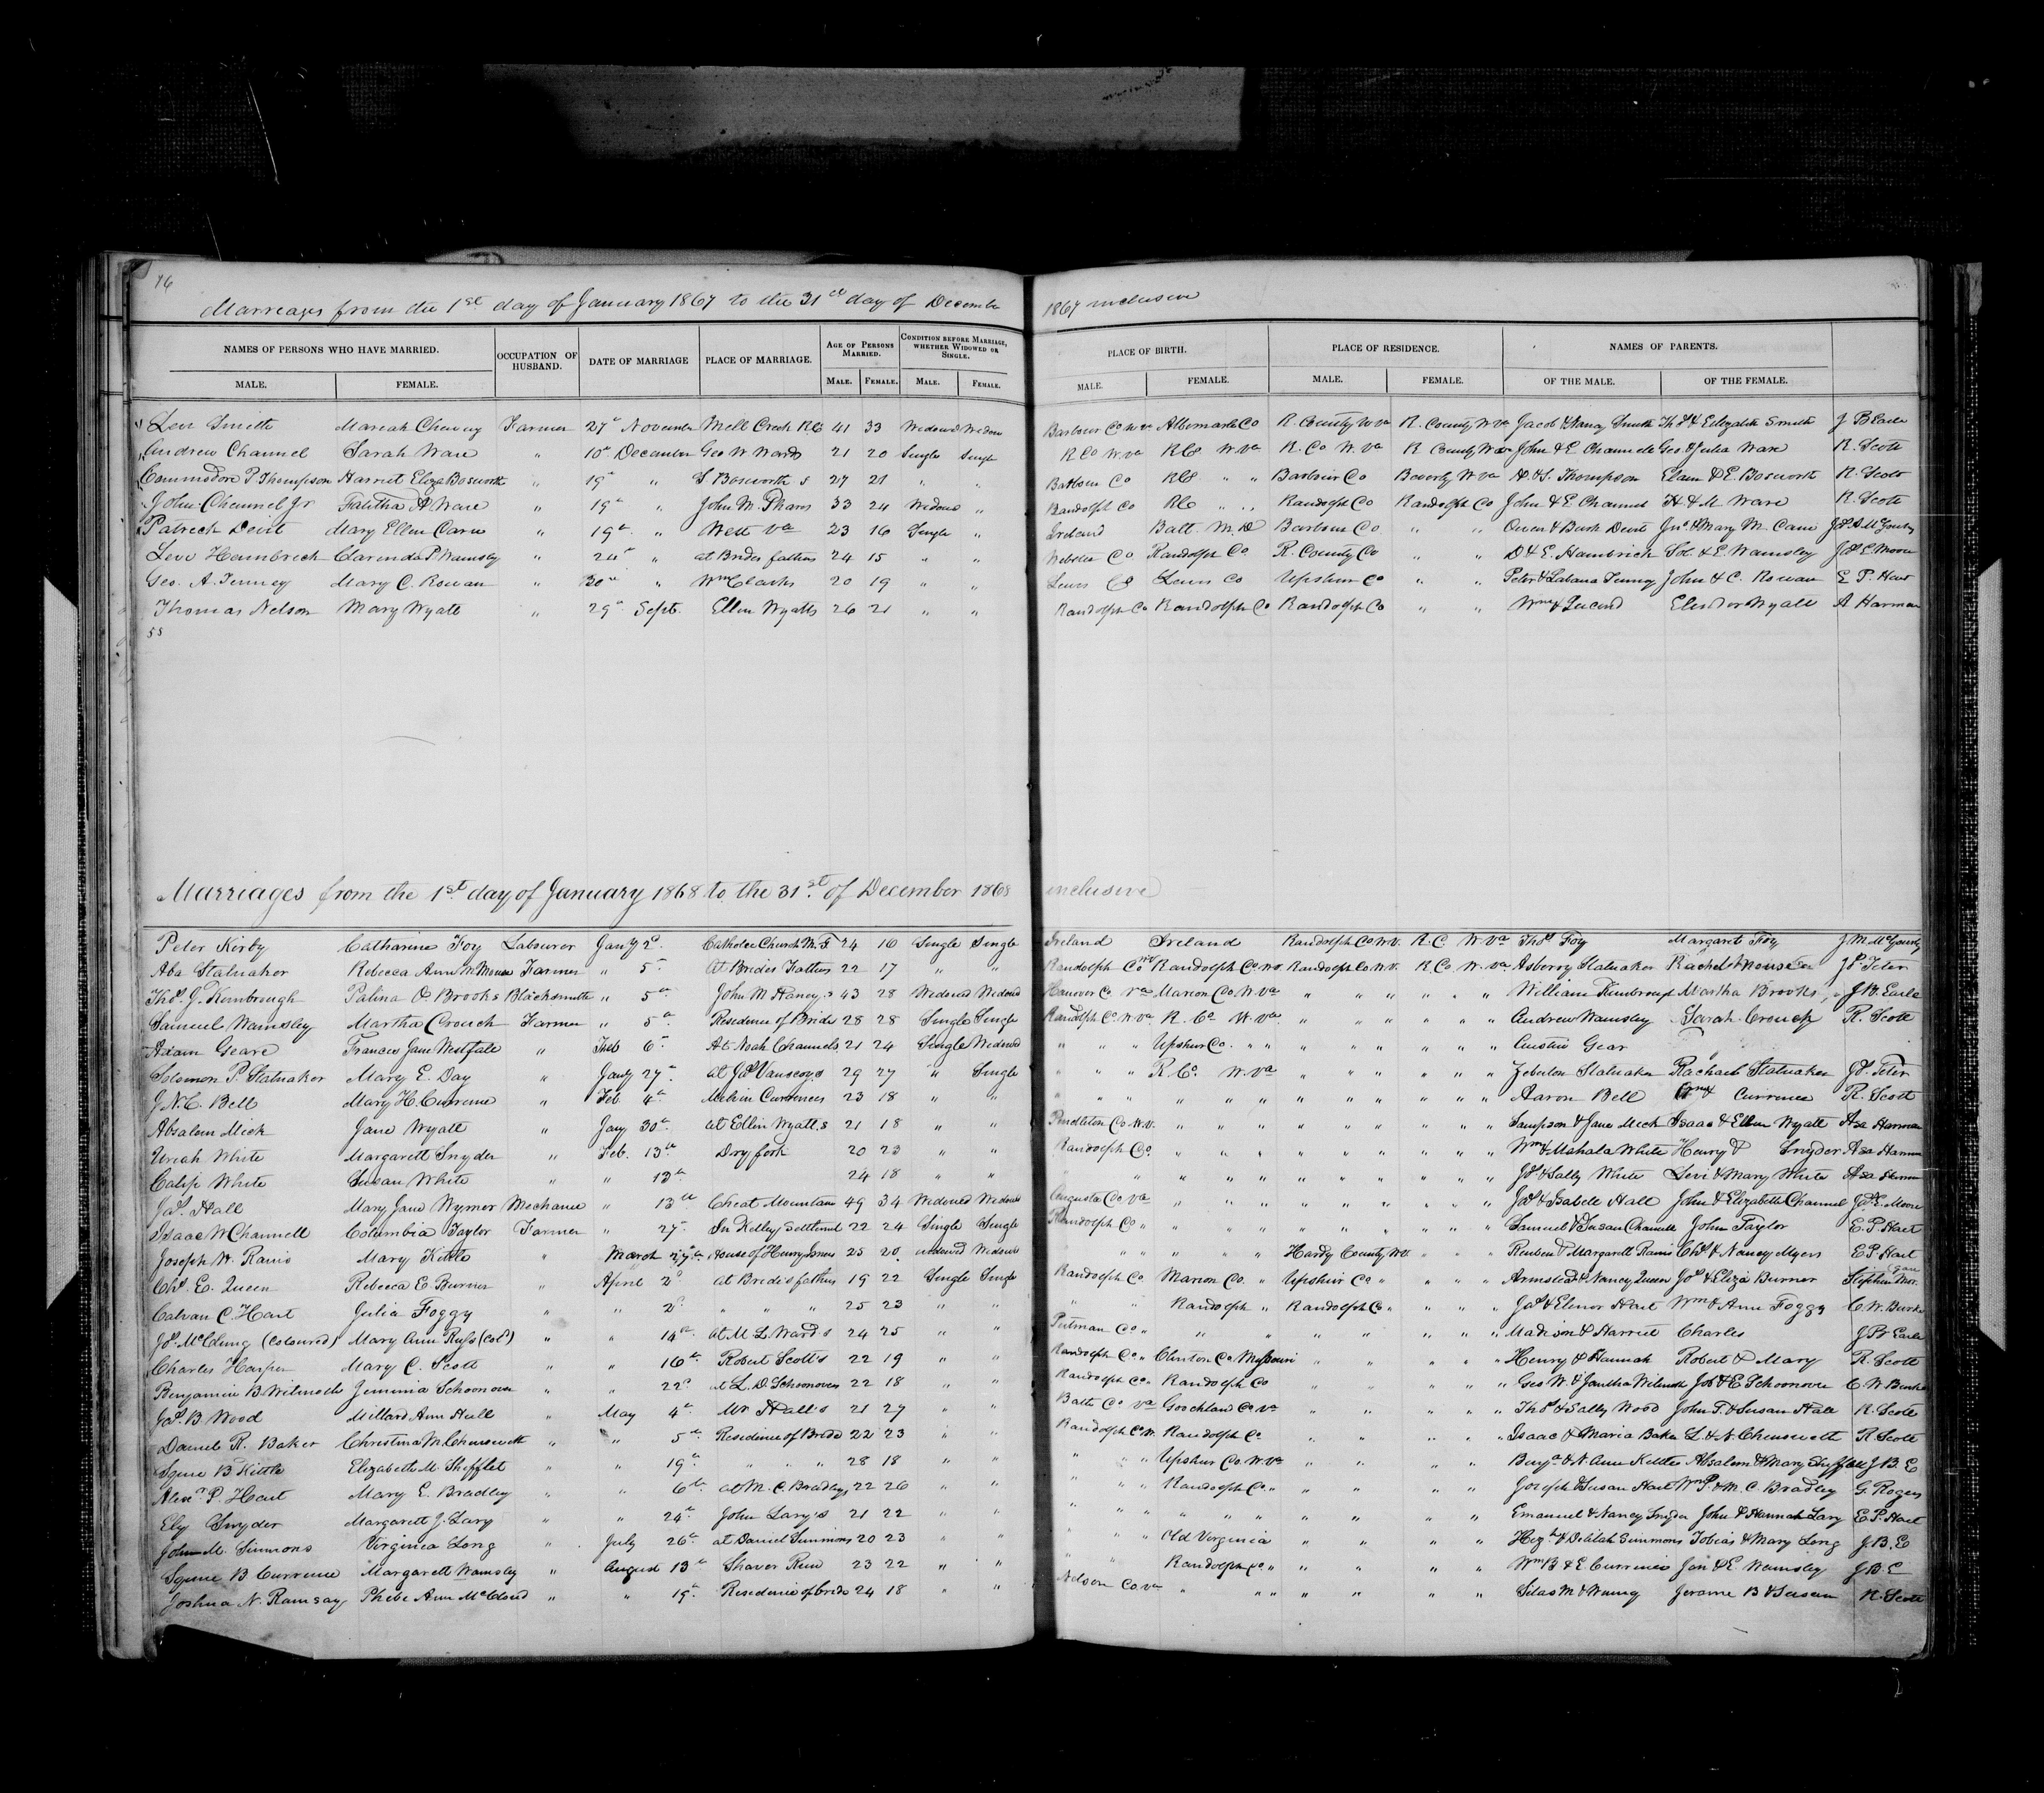 76
Marreages from the 1st day of January 1867 to the 31st day of Decembe 1867 inclusive
NAMES OF PERSONS WHO HAVE MARRIED. OCCUPATION OF HUSBAND. DATE OF MARRIAGE PLACE OF MARRIAGE. AGE OF PERSONS MARRIED. CONDITION BEFORE MARRIAGE, WHETHER WIDOWED OR SINGLE. PLACE OF BIRTH. PLACE OF RESIDENCE. NAMES OF PARENTS.
MALE. FEMALE. MALE. FEMALE. MALE. FEMALE. MALE. FEMALE. MALE. FEMALE. OF THE MALE. OF THE FEMALE.
Levi Smith Mareah Cheney Farmer 27th November Mill Creek R.C 41 33 Widowed Widow Barbour Co W va Albemarle Co R. County W va R. County W va Jacob & Nancy Smith Thos & Elizabeth Smith J B Earle
Andrew Channel Sarah Ware " 10th December Geo W Wards 21 20 Single Single R Co W va R Co W va R. Co W. Va R County W va John & E Channel Geo & Julia Ware R. Scott
Commodore P. Thompson Harriet Eliza Bosworth " 19th " S Bosworth s 27 21 " " Barbour Co R Co " " Barbour Co Beverly W va Elam & E. Bosworth R. Scott
John Channel Jr Talitha A Ware " 19th " John M. Phares 33 24 Widowed " Randolph Co R Co " " Randolph Co Randolph Co John & E Channel H. & M Ware R. Scott
Patrick Mary Ellen " 19th " West Va 23 16 Single " Ireland Balt. M. D Barbour Co " " Owen &
Levi Hambrick Clarenda P Wamsley " 24th " at Brides fathers 24 15 " " Webster Co Randolph Co R. County Co " " D & E. Hambrick Sol. & E. Wamsley Jas E Moore
Geo. A. Tenney Mary C. Rowan " 30th " Wm Clarks 20 19 " " Lewis Co Lewis Co Upshur Co " " Peter & Tenney John & C. Rowan E P. Hart
Thomas Nelson Mary Wyatt " 29th Sept. Ellen Wyatts 26 21 " " Randolph Co Randolph Co Randolph Co " " Wm & Wyatt A Harman
58
Marriages from the 1st day of January 1868 to the 31st of December 1868 inclusive
Peter Kirby Catharine Foy Labourer Jany 2d Catholic Church M. F 24 16 Single Single Ireland Ireland Randolph Co W.V. R. C. W. Va Thos Foy Margaret Foy
Aba Stalnaker Rebecca Ann M Mouse Farmer " 5th At Brides Fathers 22 17 " " Randolph Co W V Randolph Co W.V. Randolph Co W.V. R. Co. W. va Asberry Stalnaker Rachel Mouse Js. Teter
Thos. J. Kimbrough Palina O Brooks Blacksmith " 5th John M Haney,s 43 28 Widowed Widowed Hanover Co Va Marion Co. W. va " " " " " " William Kimbrough Martha Brooks J. B. Earle
Samuel Wamsley Martha Crouch Farmer " 5th Residence of Bride 28 28 Single Single Randolph Co. W. va. R. Co W. va " " " " " " Andrew Wamsley Sarah Crouch R. Scott
Adam Geare Frances Jane Westfall " Feb 6th At Noah Channels 21 24 Single Widowed " " " Upshur Co. " " " " " " " " Austin Gear
Solomon P. Stalnaker Mary E. Day " Jany 27th at Jas Vanscoy,s 29 27 " Single " " " R Co. W. va " " " " " " Zebulon Stalnaker Rachael Stalnaker Js. Teter
J. N. C. Bell Mary H. Currence " Feb 4th Melvin Currences 23 18 " " " " " " " " " " " " " " Aaron Bell Currence R. Scott
Absalem Mick Jane Wyatt " Jany 30th at Ellin Wyatt,s 21 18 " " Pendleton Co W. V. " " " " " " " " " Sampson & Jane Mick Isaac & Ellen Wyatt Asa Harman
Uriah White Margarett Snyder " Feb. 13th Dry fork 20 23 " " Randolph Co. " " " " " " " " " Wm & Mahala White Henry & Snyder Asa Harman
Calip White Susan White " " 13th 24 18 " " " " " " " " " " " Js & Sally White Levi & Mary White Asa Harman
Jas. Hall Mary Jane Wymer Mechanic " 13th Cheat Mountain 49 34 Widowed Widowed Augusta Co Va " " " " " " " " " Jas & Isabell Hall John & Elizabeth Channel Jas E. Moore
Isaac W Channell Columbia Taylor Farmer " 27th In Kelley Settlment 22 24 Single Single Randolph Co " " " " " " " " " " Samuel & Susan Channell John Taylor E. P. Hart
Joseph W. Rains Mary Kittle " March 27th House of Henry Jones 25 20 widowed Widowed " " " " " Hardy County W va " " " Reuben & Margarett Rains Chs & Nancy Myers E P. Hart
Chs. E. Queen Rebecca E. Burner " April 2d at Bride's fathers 19 22 Single Single Randolph Co. Marion Co. " Upshur Co " " " " Armsted & Nancy Queen Js & Eliza Burner Stephen Morgan
Calvan C. Hart Julia Foggy " " 2d " " " 25 23 " " " " Randolph " Randolph Co " " " " Jas & Elenor Hart Wm & Ann Foggy C. W. Burke
Js. McClung (Coloured) Mary Ann Russ (Cold) " " 14th at M. L. Ward s 24 25 " " Putman Co " " " " " " " " " Madison & Harriet Charles J B Earle
Charles Harper Mary C. Scott " " 16th Robert Scott's 22 19 " " Randolph Co. " Clinton Co Missouri " " " " " " Henry & Hannah Robert & Mary R. Scott
Benjamin B Wilmoth Jemima Schoonover " " 22d at L. D. Schoonover 22 18 " " Randolph Co. " Randolph Co " " " " " Geo W. & Jantha Wilmoth Job & E Schoonover C. W. Burke
Jas. B. Wood Millard Ann Hall " May 4th Mr Hall's 21 27 " " Bath Co Va Goochland Co Va " " " " " Thos & Sally Wood John T. & Susan Hall R. Scott
Daniel R. Baker Christina M. Chenoweth " " 5th Residence of Bride 22 23 " " Randolph Co W. Randolph Co " " " " " Isaac & Maria Baker L. & N. Chenoweth R. Scott
Squire B Kittle Elizabeth M. Shifflet " " 19th " " " 28 18 " " " " Upshur Co. W. va " " " " Benja & N. Ann Kittle Absalem & Mary Shifflett J. B. E
Alexr P. Hart Mary E. Bradley " " 6th at M. C. Bradley 22 26 " " " " Randolph Co. " " " " " Joseph & Susan Hart Wm P. & M. C. Bradley G. Rogers
Ely Snyder Margarett J. Lary " " 24th John Lary's 21 22 " " " " " " " " " " " Emanuel & Nancy Snyder John & Hannah Lary E. P. Hart
John M. Simmons Virginia Long " July 26th at Daniel Simmons 20 23 " " " " Old Virginia " " " " & Delilah Simmons Tobias & Mary Long J. B. E
Squire B Currence Margarett Wamsley " August 13th Shaver Run 23 22 " " " " Randolph Co. " " " " " Wm B & E Currence & E. Wamsley J. B. E
Joshua N. Ramsay Phebe Ann McCloud " " 19th Residence of bride 24 18 " " Nelson Co. va " " " " " " " Silas M & Jerome B & Susan R. Scott